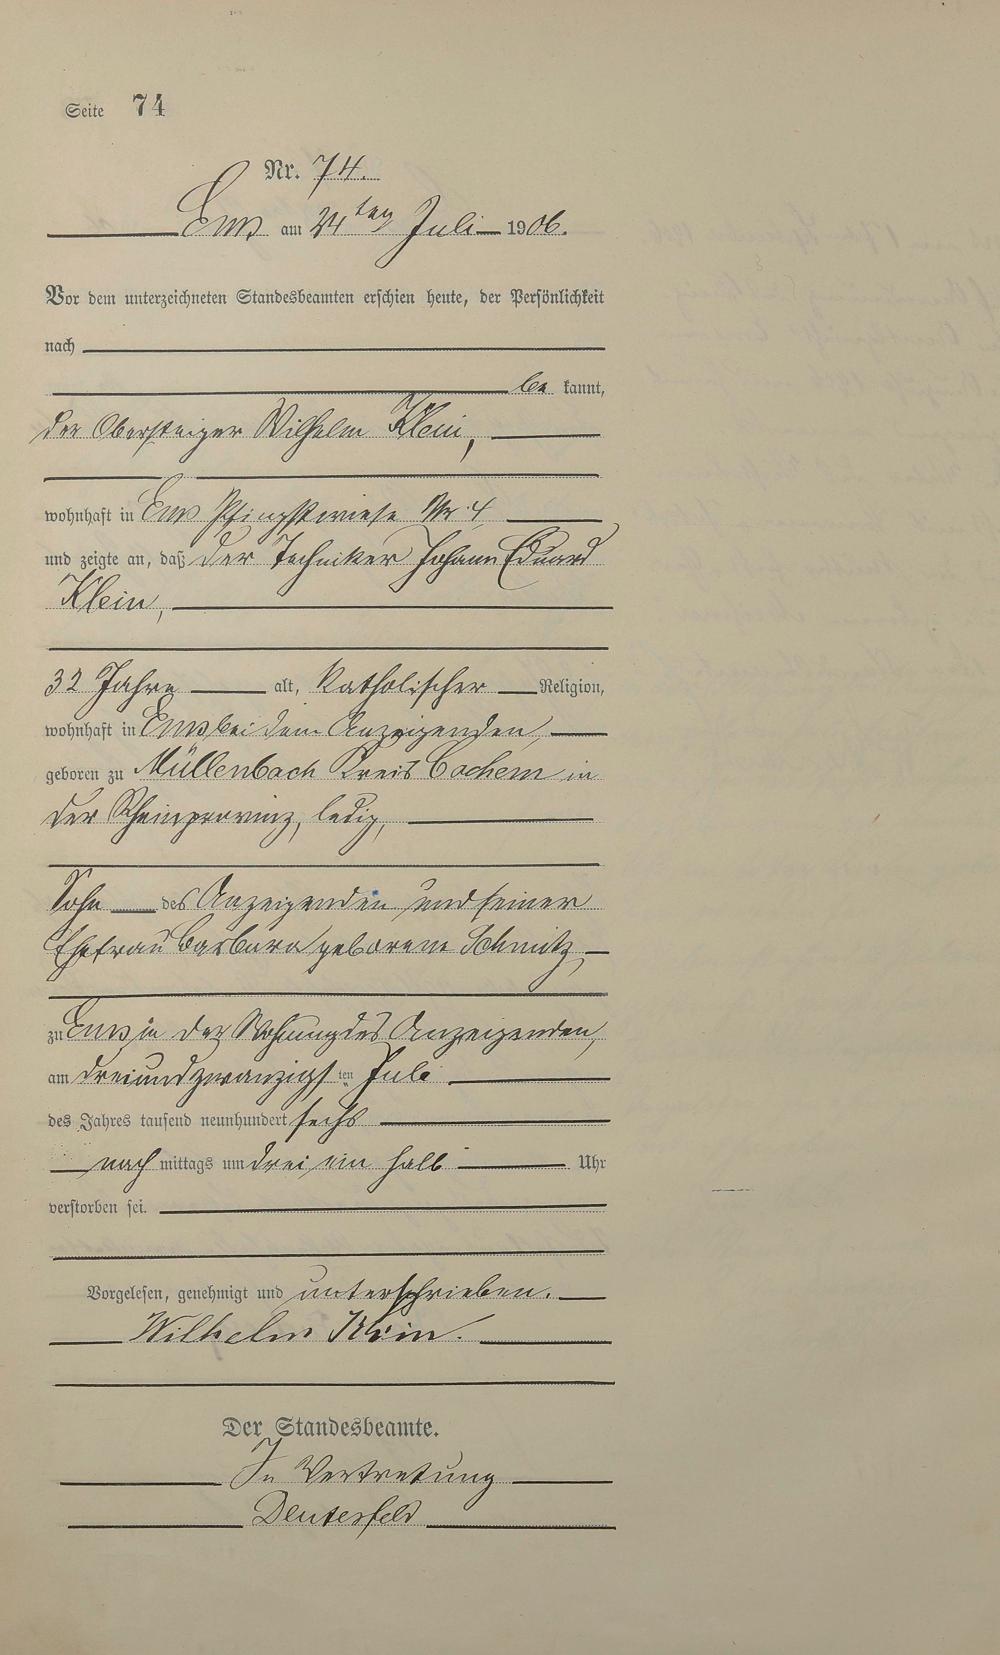 Seite 74
Nr. 74.
Ems am 24ten Juli 1906.
Vor dem unterzeichneten Standesbeamten erschien heute, der Persönlichkeit
nach
be kannt,
der Obersteiger Wilhelm Klein,
wohnhaft in Ems Pfingstwiese Nr. 4
und zeigte an, daß der Techniker Johann Eduard
Klein,
32 Jahre alt, katholischer Religion,
wohnhaft in Ems bei dem Anzeigenden,
geboren zu Müllenbach Kreis Cochem in
der Rheinprovinz, ledig,
Sohn des Anzeigenden und seiner
Ehefrau Barbara geborene Schmitz
zu Ems in der Wohnung des Anzeigenden,
am dreiundzwanzigsten Juli
des Jahres tausend neunhundert sechs
nach mittags um drei ein halb Uhr
verstorben sei.
Vorgelesen, genehmigt und unterschrieben.
Wilhelm Klein.
Der Standesbeamte.
In Vertretung